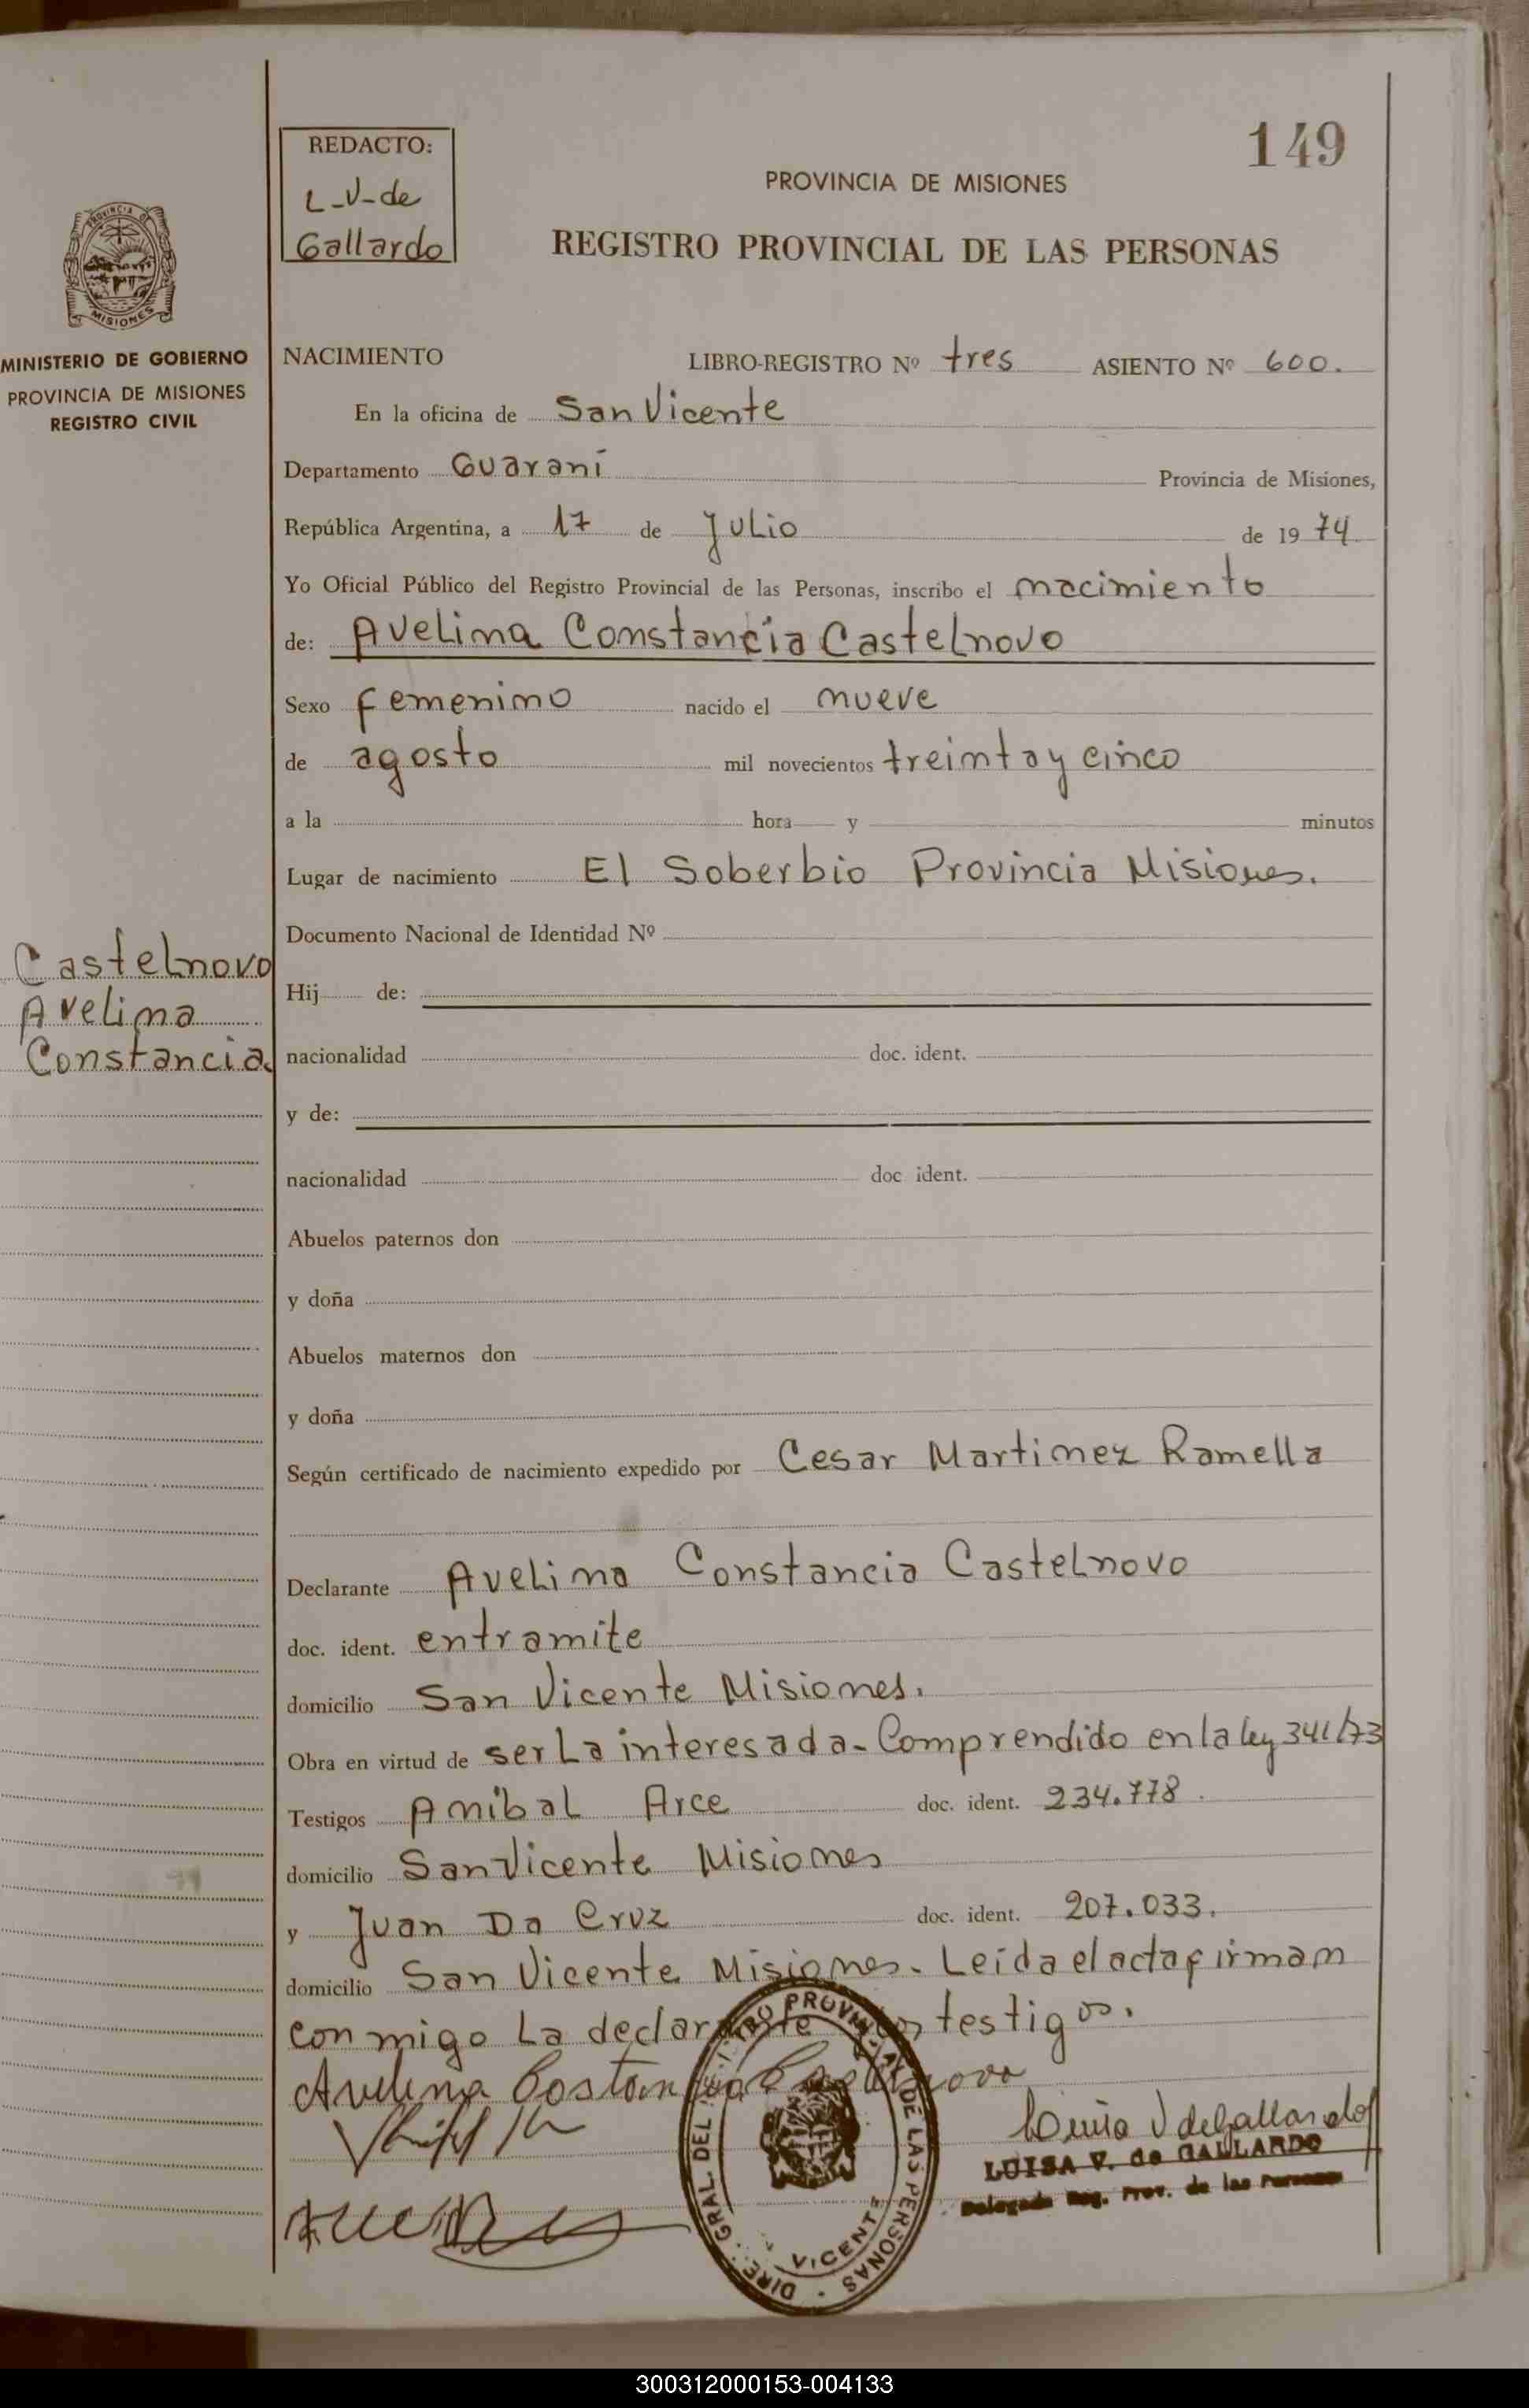 149
REDACTO:
L-V-de
Gallardo
PROVINCIA DE MISIONES
REGISTRO PROVINCIAL DE LAS PERSONAS
PROVINCIA DE
MISIONES
MINISTERIO DE GOBIERNO
PROVINCIA DE MISIONES
REGISTRO CIVIL
NACIMIENTO LIBRO-REGISTRO Nº tres ASIENTO Nº 600.
En la oficina de San Vicente
Departamento Guaraní Provincia de Misiones,
República Argentina, a 17 de Julio de 1974
Yo Oficial Público del Registro Provincial de las Personas, inscribo el nacimiento
de: Avelina Constancia Castelnovo
Sexo femenino nacido el nueve
de agosto mil novecientos treinta y cinco
a la hora y minutos
Lugar de nacimiento El Soberbio Provincia Misiones.
Documento Nacional de Identidad Nº
Castelnovo
Avelina
Constancia
Hij de:
nacionalidad doc. ident.
y de:
nacionalidad doc ident.
Abuelos paternos don
y doña
Abuelos maternos don
y doña
Según certificado de nacimiento expedido por Cesar Martinez Ramella
Declarante Avelina Constancia Castelnovo
doc. ident. entramite
domicilio San Vicente Misiones.
Obra en virtud de ser La interesada - Comprendido en la ley 341/73
Testigos Anibal Arce doc. ident. 234.778.
domicilio San Vicente Misiones
y Juan Da Cruz doc. ident. 207.033.
domicilio San Vicente Misiones. Leída el acta firman
conmigo La declarante y los testigos.
Avelina Costancia Castelnovo
Luisa V de Gallardo
LUISA V. de GALLARDO
Delegada Reg. Prov. de las Personas
DIRE. GRAL. DEL REGISTRO PROVINCIAL DE LAS PERSONAS
VICENTE
300312000153-004133